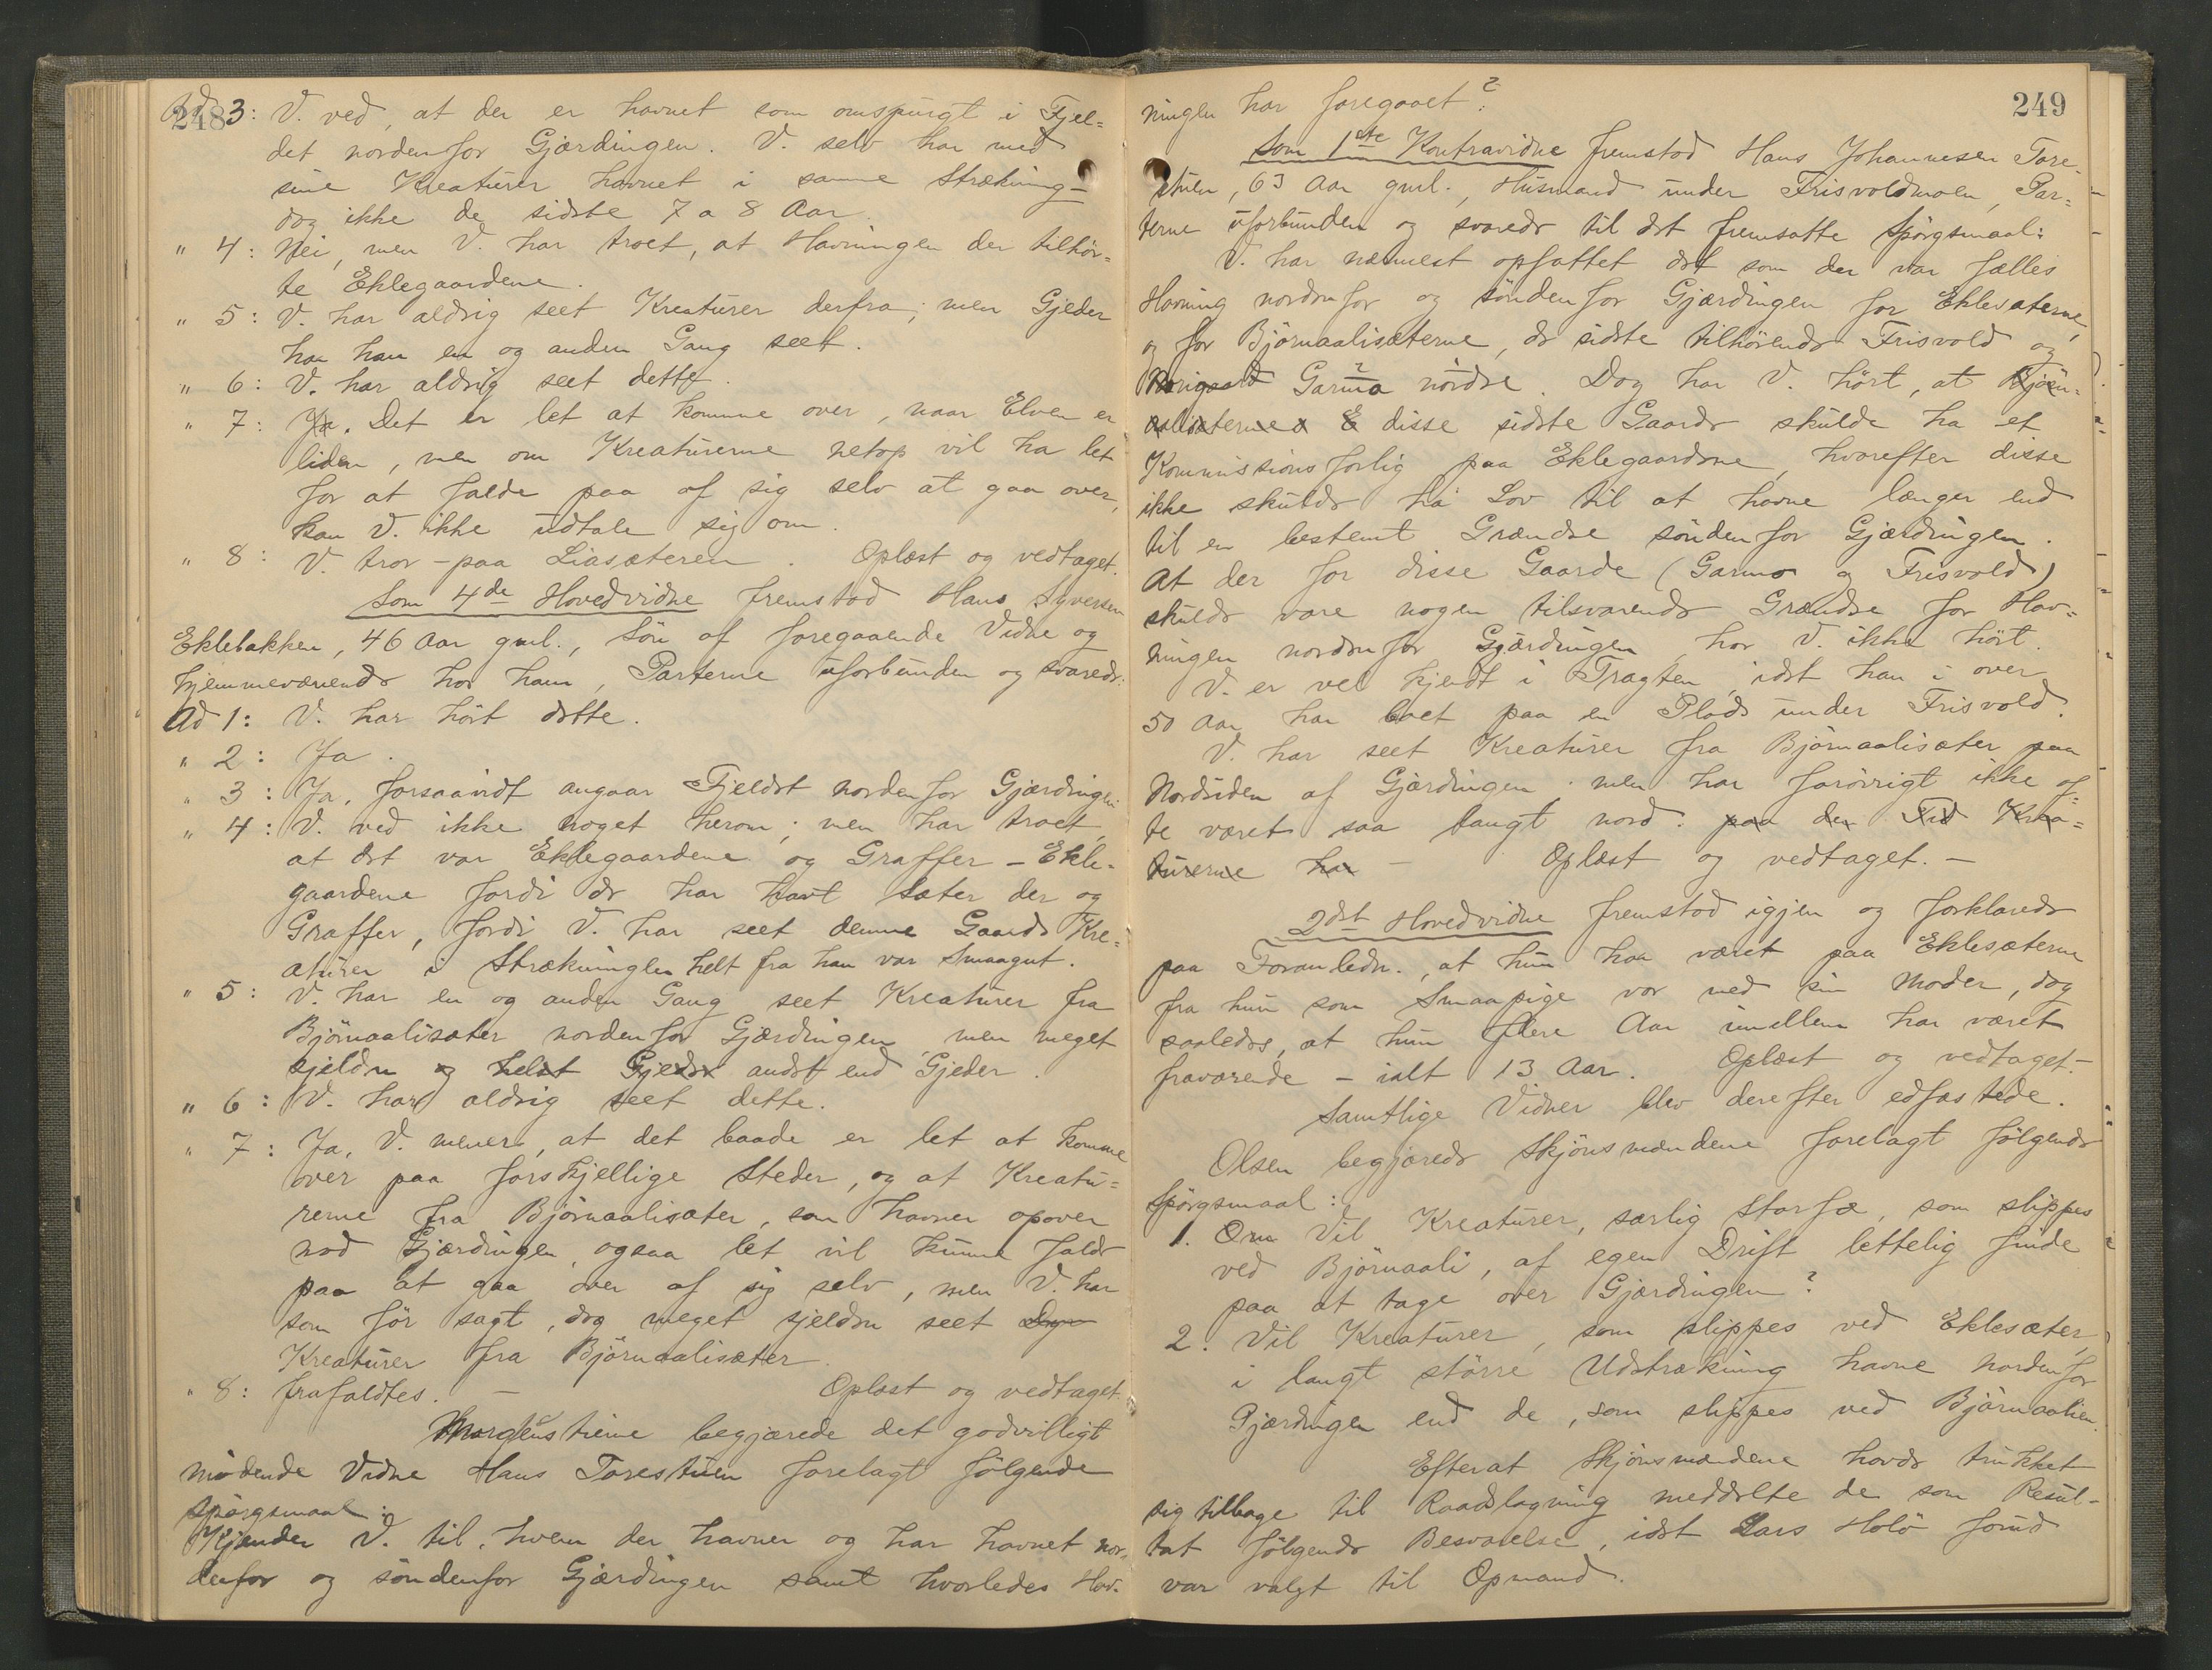 248
Ad 3: V. ved, at der er havnet som omspurgt i Fjel=
det nordenfor Gjærdingen. V. selv har med
sine Kreaturer havnet i samme Strækning –
dog ikke de sidste 7 a 8 Aar.
" 4: Nei, men V. har troet, at Havningen der tilhør=
te Eklegaardene.
" 5: V. har aldrig seet Kreaturer derfra; men Gjeder
har han en og anden Gang seet.
" 6: V. har aldrig seet dette.
" 7: Ja. Det er let at komme over, naar Elven er
liden, men om Kreaturerne netop vil ha let
for at falde paa af sig selv at gaa over,
kan V. ikke udtale sig om.
" 8: V. tror – paa Liasæteren. Oplæst og vedtaget.
Som 4de Hovedvidne fremstod Hans Syversen
Eklebakken, 46 Aar gml., Søn af foregaaende Vidne og
hjemmeværende hos ham, Parterne uforbunden og svarede:
Ad 1: V. har hört dette.
" 2: Ja.
" 3: Ja, forsaavidt angaar Fjeldet nordenfor Gjærdingen.
" 4: V. ved ikke noget herom; men har troet,
at det var Eklegaardene og Graffer – Ekle=
gaardene fordi de har havt Sæter der og
Graffer, fordi V. har seet denne Gaards Kre=
aturer i Strækningen helt fra han var Smaagut.
" 5: V. har en og anden Gang seet Kreaturer fra
Björnaalisæter nordenfor Gjærdingen, men meget
sjelden og helst Gjeder andet end Gjeder.
" 6: V. har aldrig seet dette.
" 7: Ja, V. mener, at det baade er let at komme
over paa forskjellige Steder, og at Kreatu=
rerne fra Björnaalisæter, som havner opover
mod Gjærdingen, ogsaa let vil kunne falde
paa at gaa over af sig selv, men V. har
som för sagt, dog meget sjelden seet
Kreaturer fra Björnaalisæter.
" 8: frafaldtes. – Oplæst og vedtaget.
Morgenstierne begjærede det godvilligt
mödende Vidne Hans Torestuen forelagt fölgende
Spörgsmaal:
Kjender V. til, hvem der havner og har havnet nor=
denfor og söndenfor Gjærdingen samt hvorledes Hav=
249
ningen har foregaaet?
Som 1ste Kontravidne fremstod Hans Johannesen Tore=
stuen, 63 Aar gml., Husmand under Frisvoldmoen, Par=
terne uforbunden og svarede til det fremsatte Spörgsmaal:
V. har nærmest opfattet det som der var fælles
Havning nordenfor og söndenfor Gjærdingen for Eklesæterne,
og for Björnaalisæterne, de sidste tilhörende Frisvold og
Garmo nordre. Dog har V. hört, at Björn=
aalisæterne disse sidste Gaarde skulde ha et
Kommissionsforlig paa Eklegaardene, hvorefter disse
ikke skulde ha Lov til at havne længer end
til en bestemt Grændse söndenfor Gjærdingen.
At der for disse Gaarde (Garmo og Frisvold)
skulde være nogen tilsvarende Grændse for Hav=
ningen nordenfor Gjærdingen har V. ikke hört.
V. er vel kjendt i Tragten, idet han i over
50 Aar har boet paa en Plads under Frisvold.
V. har seet Kreaturer fra Björnaalisæter paa
Nordsiden af Gjærdingen; men har forövrigt ikke of=
te været saa langt nord. paa den Tid Krea=
turerne har – Oplæst og vedtaget. –
2det Hovedvidne fremstod igjen og forklarede
paa Foranledn., at hun har været paa Eklesæterne
fra hun som Smaapige var med sin Moder, dog
saaledes, at hun flere Aar imellem har været
fraværende – ialt 13 Aar. Oplæst og vedtaget. –
Samtlige Vidner blev derefter edfæstede.
Olsen begjærede Skjönsmændene forelagt fölgende
Spörgsmaal:
1. Om Vil Kreaturer, særlig Storfæ, som slippes
ved Björnaali, af egen Drift lettelig finde
paa at tage over Gjærdingen?
2. Vil Kreaturer, som slippes ved Eklesæter,
i langt större Udstrækning havne nordenfor
Gjærdingen end de, som slippes ved Björnaalien.
Efterat Skjönsmændene havde trukket
sig tilbage til Raadslagning meddelte de som Resul=
tat fölgende Besvarelse, idet Lars Holö forud
var valgt til Opmand.